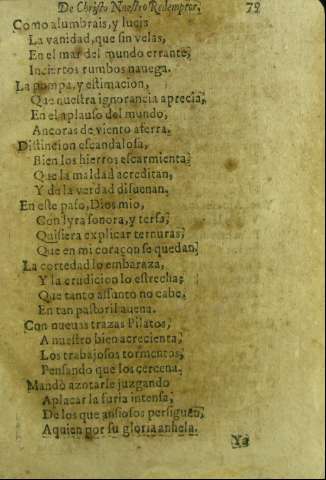 De Christo Nuestro Redemptor. 79
Como alumbrais, y lucis
La vanidad, que sin velas,
En el mar del mundo errante,
Inciertos rumbos nauega.
La pompa, y estimacion,
Que nuestra ignorancia aprecia,
En el aplauso del mundo,
Ancoras de viento aferra.
Distincion escandalosa,
Bien los hierros escarmienta,
Que la maldad acreditan,
Y de la verdad disuenan.
En este paso, Dios mio,
Con lyra sonora, y tersa,
Quisiera explicar ternuras,
Que en mi coraçon se quedan,
La cortedad lo embaraza,
Y la erudicion lo estrecha,
Que tanto assunto no cabe,
En tan pastoril auena.
Con nueuas trazas Pilatos,
A nuestro bien acrecienta,
Los trabajosos tormentos,
Pensando que los cercena.
Mandò azotarle juzgando
Aplacar la furia intensa,
De los que ansiosos persiguen,
A quien por su gloria anhela.